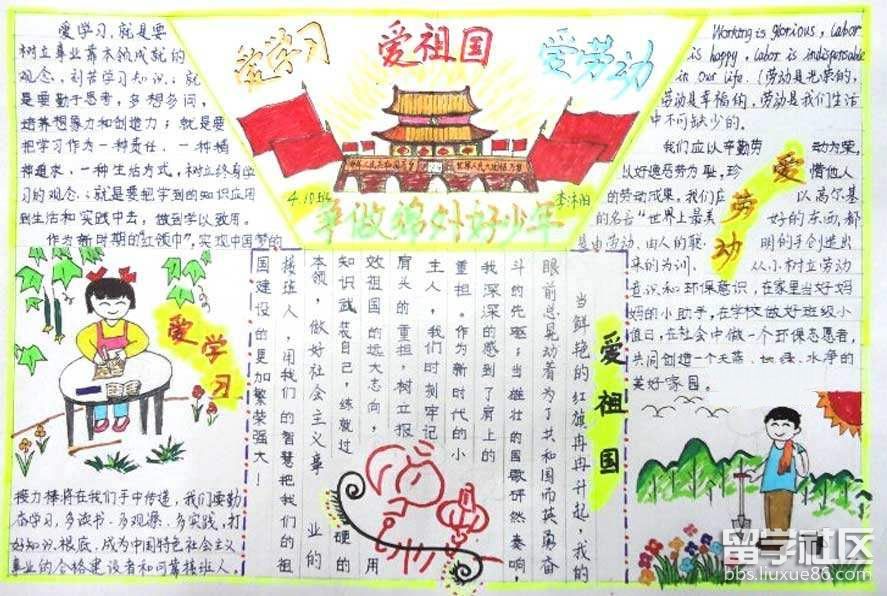 爱学习
爱祖国
爱劳动
4.10班
争做格外好少年
爱学习,就是要
树立事业靠本领成就的
观念,刻苦学习知识;就
是要勤于思考,多想多问,
培养想象力和创造力;就是要
把学习作为一种责任、一种精
神追求、一种生活方式,树立终身学
习的观念;就是要把学到的知识应用
到生活和实践中去,做到学以致用。
作为新时期的“红领巾”,实现中国梦的
爱学习
接力棒将在我们手中传递,我们要勤
奋学习,多读书、多观察、多实践,打
好知识根底,成为中国特色社会主义
事业的合格建设者和可靠接班人。
爱祖国
当鲜艳的红旗冉冉升起,我的
眼前总晃动着为了共和国而英勇奋
斗的先驱;当雄壮的国歌砰然奏响,
我深深的感到了肩上的
重担。作为新时代的小
主人,我们时刻牢记
肩头的重担,树立报
效祖国的远大志向,用
知识武装自己,练就过硬的
本领,做好社会主义事业的
接班人,用我们的智慧把我们的祖
国建设的更加繁荣强大!
Working is glorious, labor
is happy, labor is indispensable
in our life.(劳动是光荣的,
劳动是幸福的,劳动是我们生活
中不可缺少的。
我们应以辛勤劳动为荣,
以好逸恶劳为耻,珍惜他人
的劳动成果。我们应以高尔基
的名言“世界上最美好的东西,都
是由劳动、由人的聪明的手创造出
来的为训、从小树立劳动
意识和环保意识,在家里当好妈
妈的小助手,在学校做好班级小
值日,在社会中做一个环保志愿者,
共同创造一个天蓝、地绿、水净的
美好家园。
爱劳动
留学社区
bbs.liuxue86.com